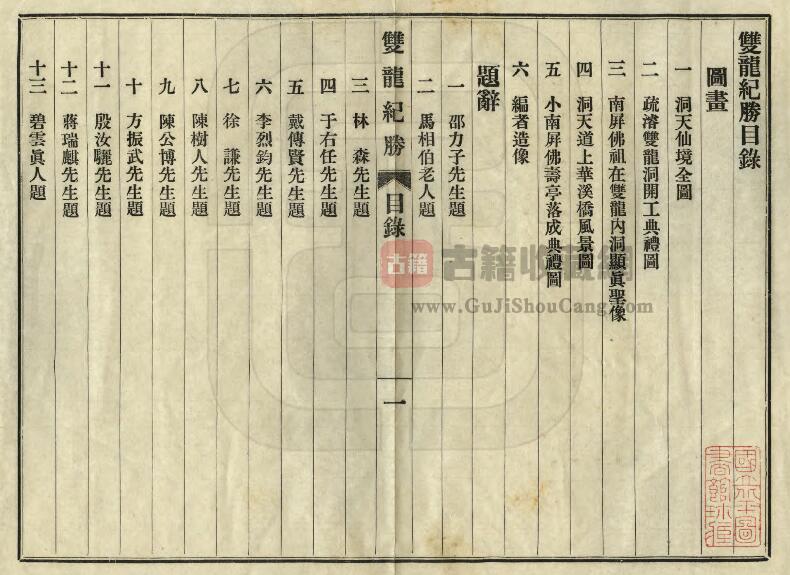 雙龍紀勝目錄
圖畫
一 洞天仙境全圖
二 疏濬雙龍洞開工典禮圖
三 南屏佛祖在雙龍內洞顯眞聖像
四 洞天道上華溪橋風景圖
五 小南屏佛壽亭落成典禮圖
六 編者造像
題辭
一 邵力子先生題
二 馬相伯老人題
雙龍紀勝 目錄 一
三 林 森先生題
四 于右任先生題
五 戴傳賢先生題
六 李烈鈞先生題
七 徐 謙先生題
八 陳樹人先生題
九 陳公博先生題
十 方振武先生題
十一 殷汝驪先生題
十二 蔣瑞麒先生題
十三 碧雲眞人題
古籍
古籍收藏網
www.GuJiShouCang.com